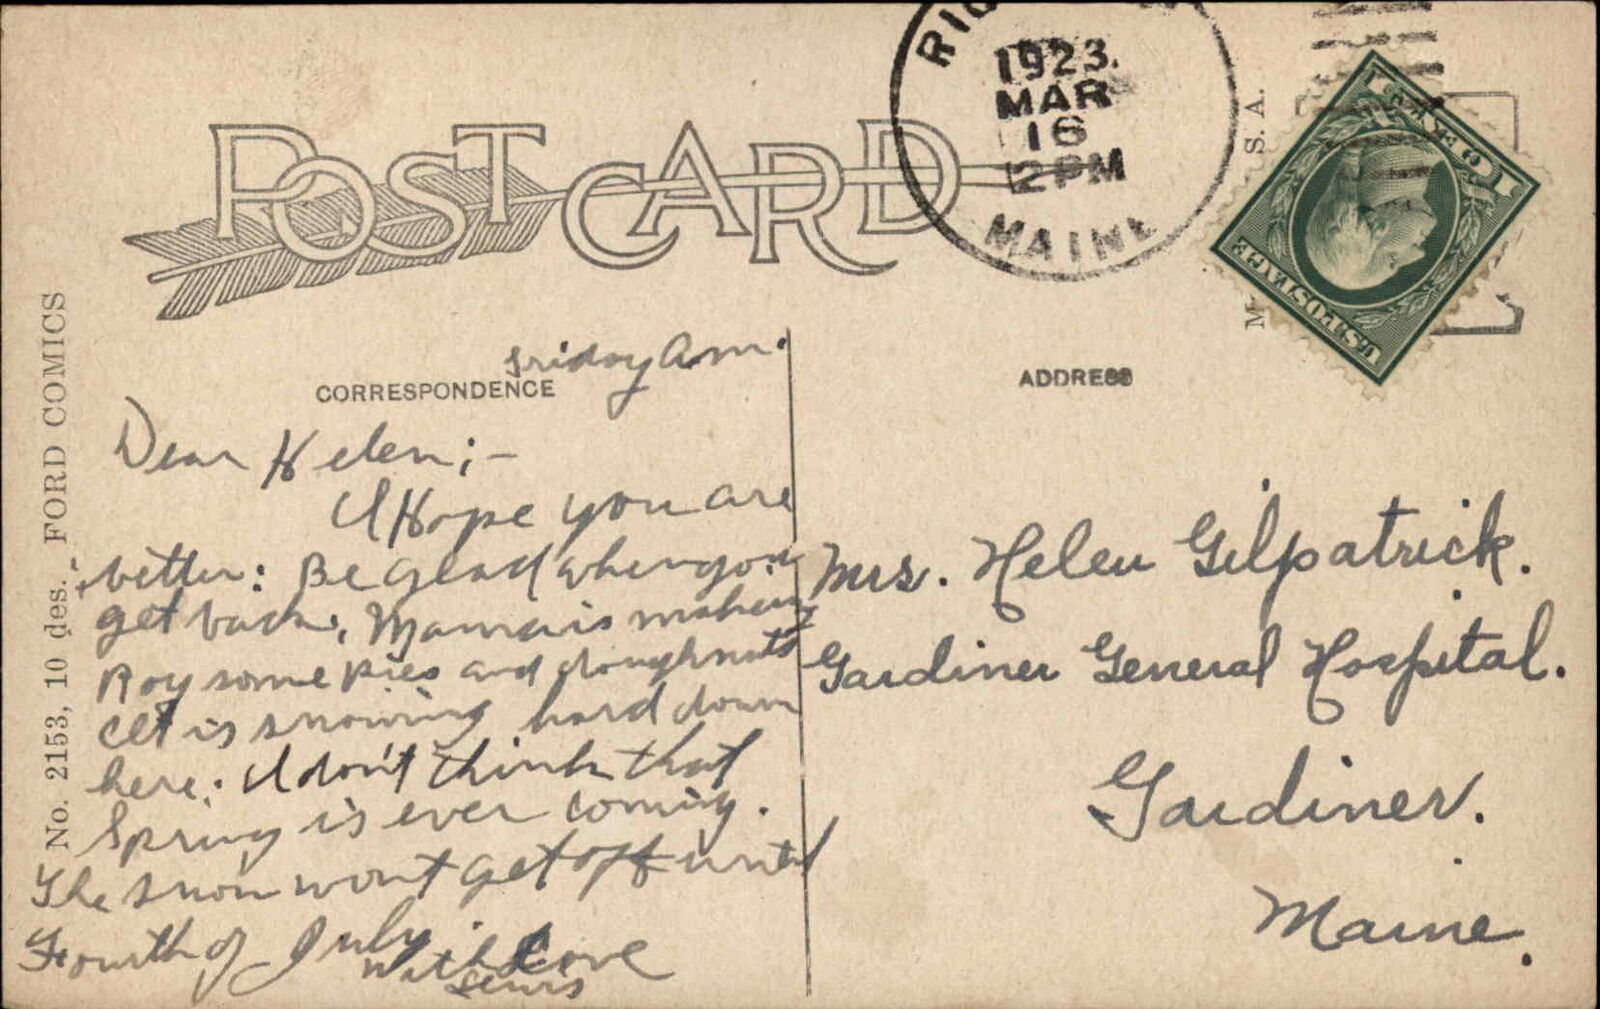 POST CARD
1923.
MAR
16
12 PM
MAINE
S. A.
1 CENT 1
U.S. POSTAGE
No. 2153, 10 des. FORD COMICS
CORRESPONDENCE
ADDRESS
Friday a.m.
Dear Helen;-
I Hope you are
better: Be glad when you
get back. Mama is making
Roy some pies and doughnuts
It is snowing hard down
here. I don't think that
Spring is ever coming.
The snow wont get off until
Fourth of July.
With Love
Lewis
Mrs. Helen Gilpatrick.
Gardiner General Hospital.
Gardiner.
Maine.